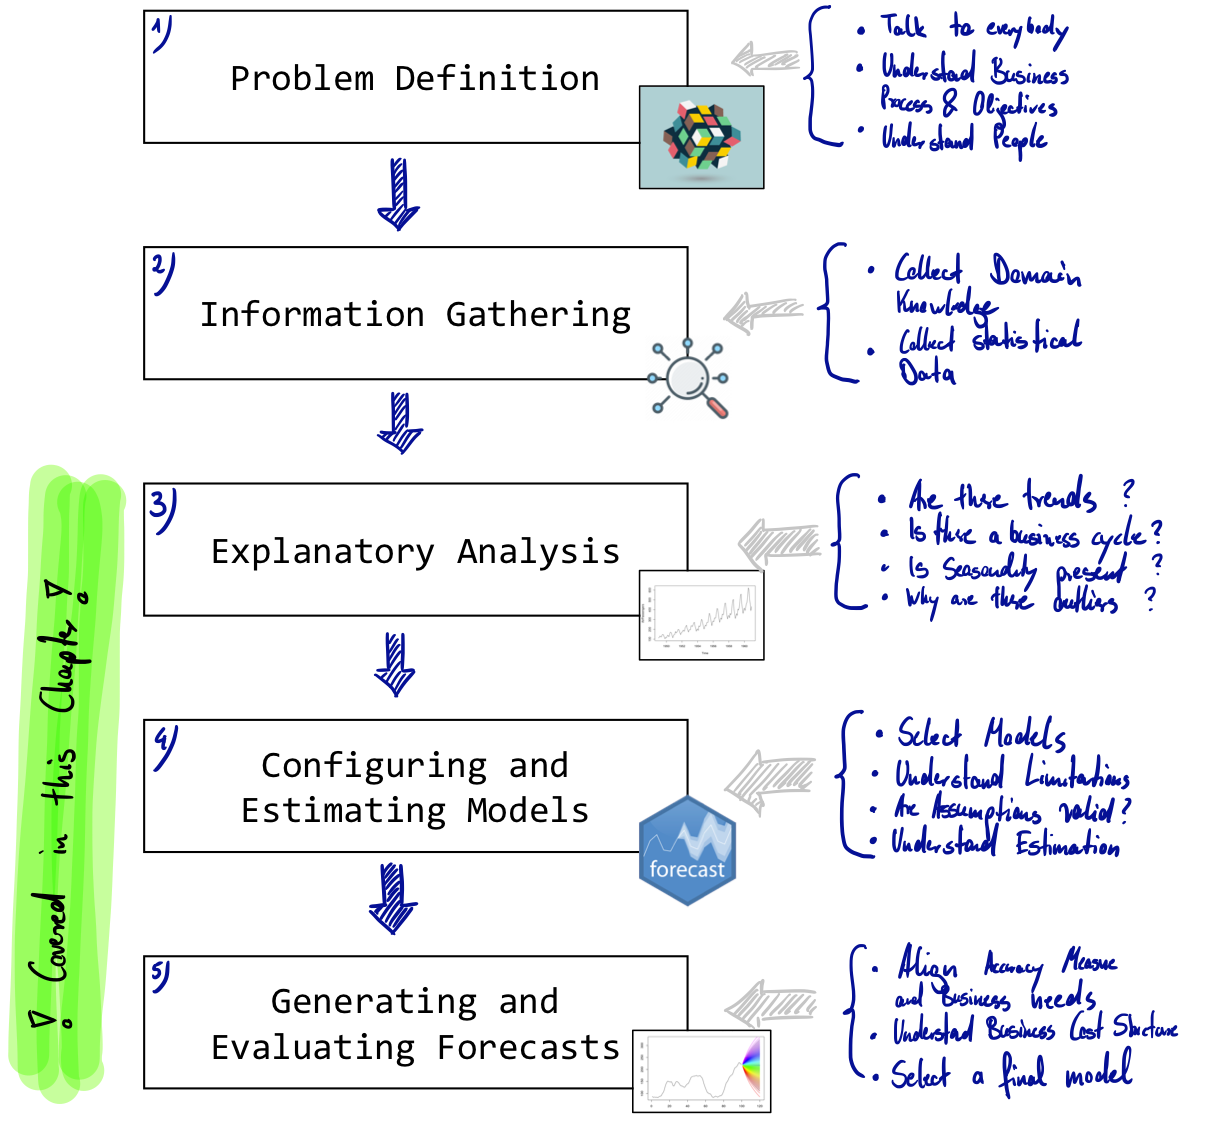 1)
Problem Definition
• Talk to everybody
• Understand Business
Process & Objectives
• Understand People
2)
Information Gathering
• Collect Domain
Knowledge
• Collect statistical
Data
3)
Explanatory Analysis
• Are there trends ?
• Is there a business cycle?
• Is Seasonality present ?
• Why are there outliers ?
4)
Configuring and
Estimating Models
forecast
• Select Models
• Understand Limitations
• Are Assumptions valid?
• Understand Estimation
5)
Generating and
Evaluating Forecasts
• Align Accuracy Measure
and Business needs
• Understand Business Cost Structure
• Select a final model
! Covered in this Chapter !